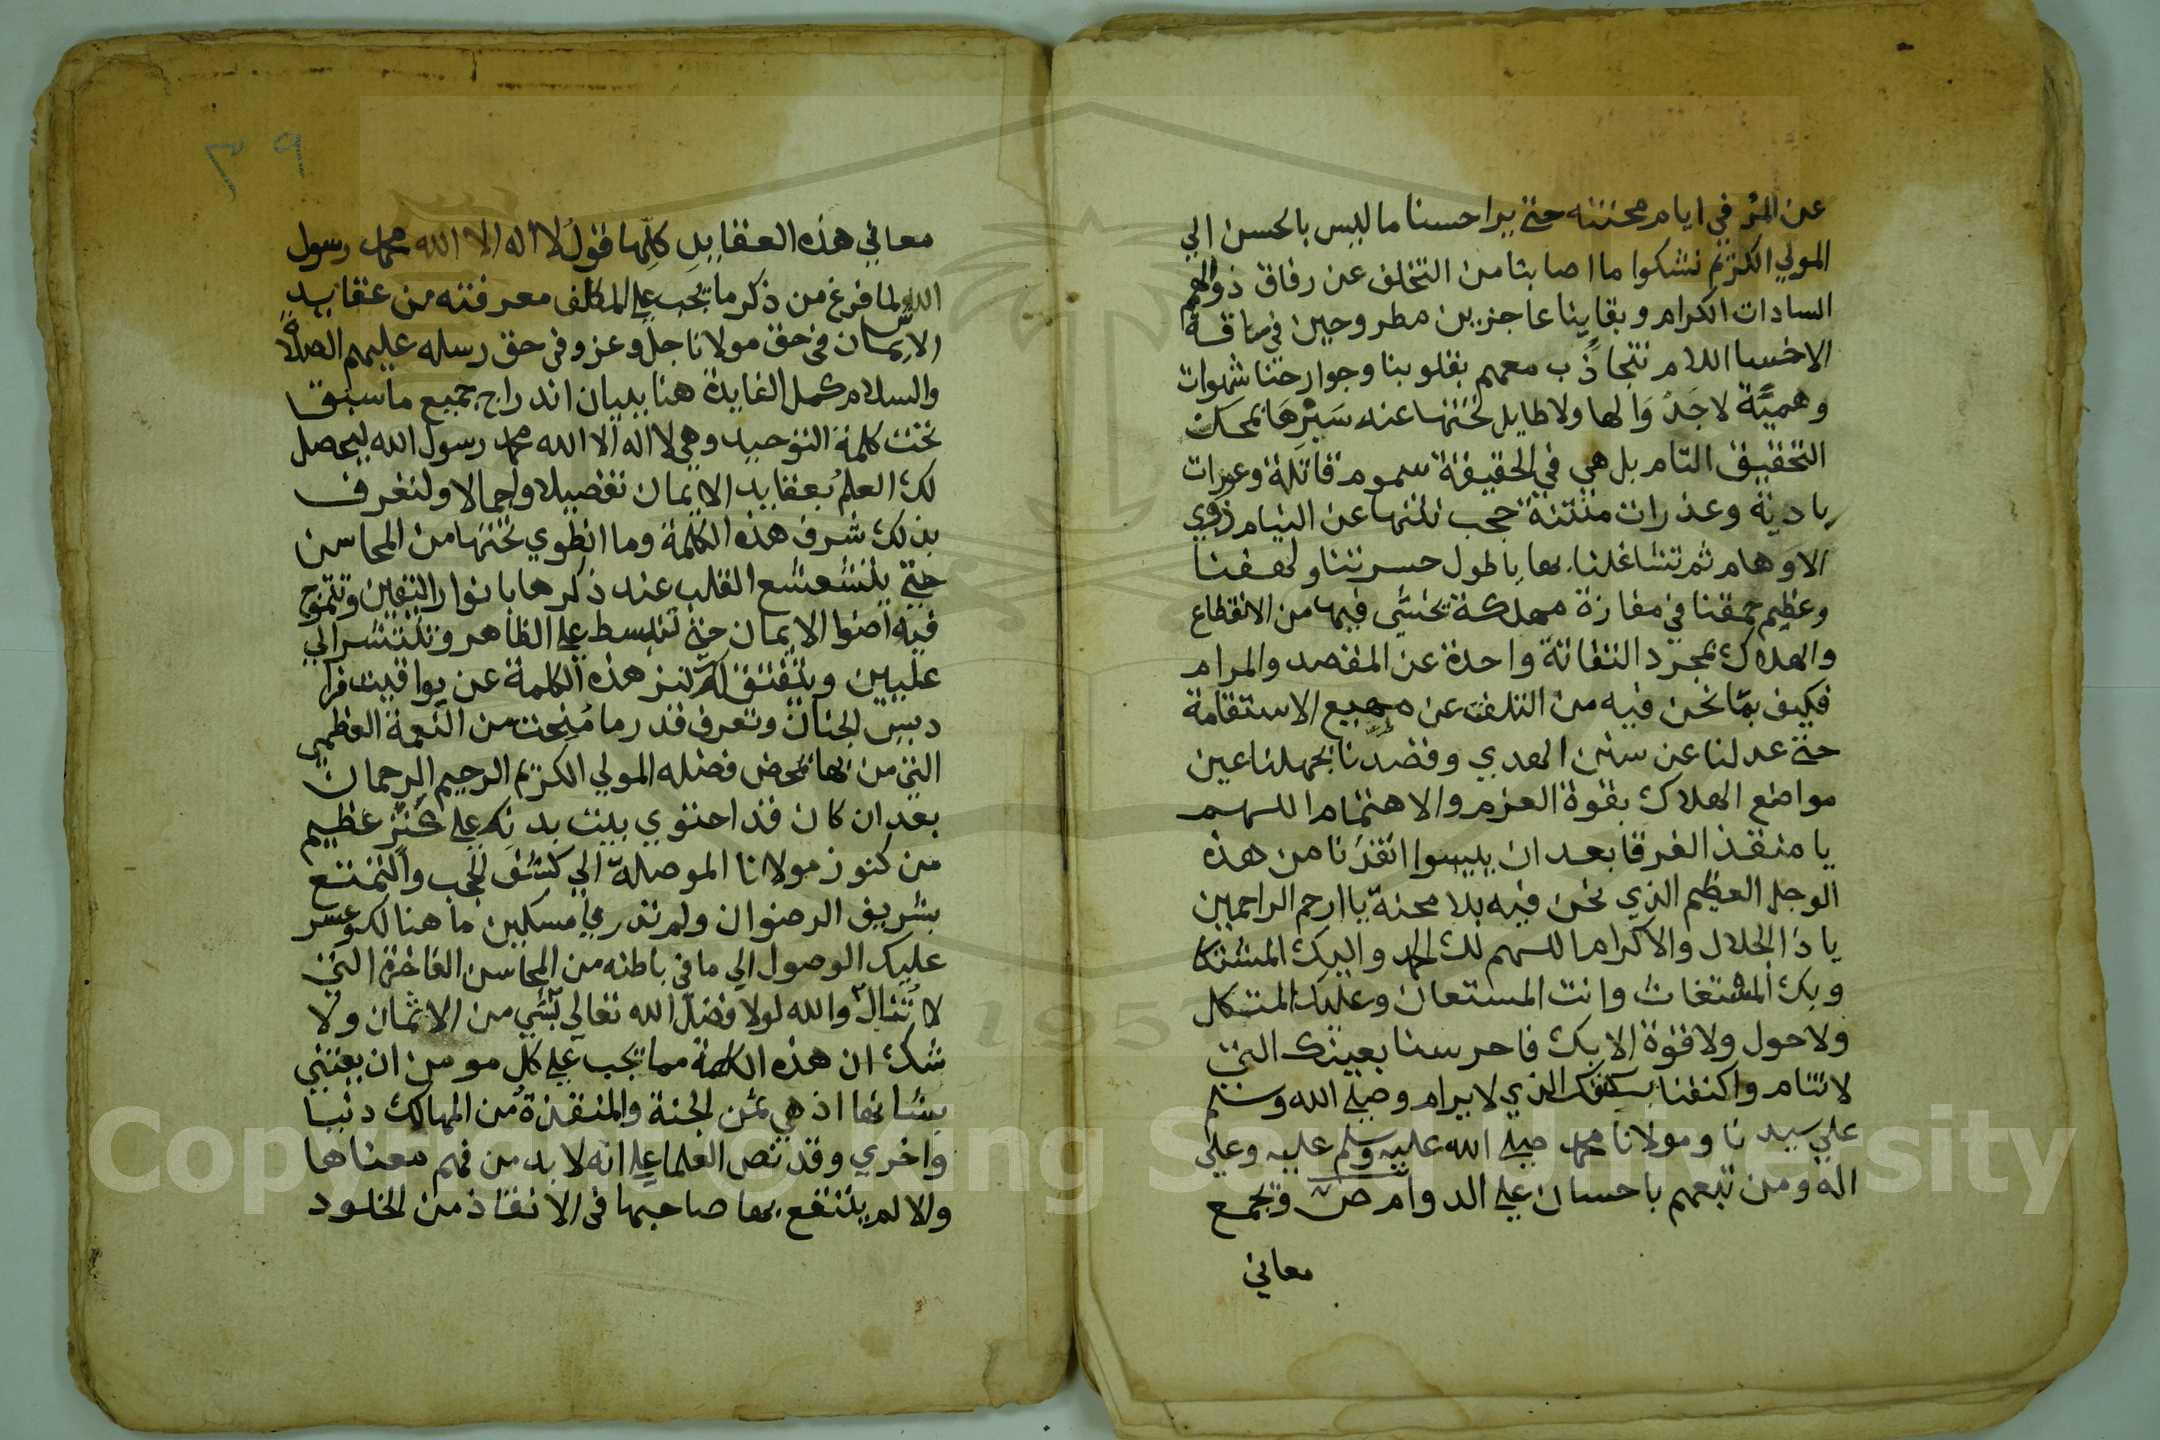 عن المر في ايام محنته حتى يرا حسنا ما ليس بالحسن الي
المولي الكريم نشكوا ما اصابنا من التخلف عن رفاق ذوالهم
السادات الكرام وبقاينا عاجزين مطروحين في ساقة
الاخسا اللام نتجاذب معهم بقلوبنا وجوارحنا شهوات
وهميَّة لا جَدْوَا لها ولا طايل تحتها عند سَبْرِهَا بمحك
التحقيق التام بل هي في الحقيقة سموم قاتلة وعورات
بادية وعذرات منتنة حجب نتنها عن النيام ذوي
الاوهام ثم تشاغلنا بها ياطول حسرتنا ولهفنا
وعظيم حمقنا في مفازة مهلكة يخشي فيها من الانقطاع
والهلاك بمجرد التفاتة واحدة عن المقصد والمرام
فكيف بما نحن فيه من التلفت عن مهيع الاستقامة
حتى عدلنا عن سنن الهدي وقصدنا بجهلنا عين
مواضع الهلاك بقوة العزم والاهتمام اللهم
يا منقذ الغرقا بعد ان ييسوا انقذنا من هذه
الوحل العظيم الذي نحن فيه بلا محنة يا ارحم الراحمين
يا ذا الجلال والاكرام اللهم لك الحمد واليك المشتكا
وبك المستغاث وانت المستعان وعليك المتكل
ولا حول ولا قوة الا بك فاحرسنا بعينك التي
لا تنام واكنفنا بكنفك الذي لا يرام وصلي الله وسلم
علي سيدنا ومولانا محمد صلي الله عليه وسلم عليه وعلي
اله ومن تبعهم باحسان علي الدوام ص ويجمع
معاني
٣٩
معاني هذه العقايدِ كلِّها قولُ لا اله الا الله محمد رسول
الله لما فرغ من ذكر ما يجب علي المكلف معرفته من عقايد
الايمان في حق مولانا جل وعز وفي حق رسله عليهم الصلاة
والسلام كمل الفايدة هنا ببيان اندراج جميع ما سبق
تحت كلمة التوحيد وهي لا اله الا الله محمد رسول الله ليحصل
لك العلم بعقايد الايمان تفصيلا واجمالا ولتعرف
بذلك شرف هذه الكلمة وما انطوي تحتها من المحاسن
حتى يتشعشع القلب عند ذكرها بانوار اليقين وتتموج
فيه اضوا الايمان حتى تنبسط علي الظاهر وتنتشر الي
عليين ويتفتق لك كنز هذه الكلمة عن يواقيت فرا
ديس الجنان وتعرف قدر ما مُنِحتَ من النعمة العظمي
التي من بها بمحض فضله المولي الكريم الرحيم الرحمان
بعد ان كان قد احتوي بيت بدنك علي كنز عظيم
من كنوز مولانا الموصلة الي كشف الحجب والتمتع
بشريف الرضوان ولم تدر يا مسكين ما هنالك وعسر
عليك الوصول الي ما في باطنه من المحاسن الفاخرة التي
لا تُنال والله لولا فضل الله تعالي بشي من الاثمان ولا
شك ان هذه الكلمة مما يجب علي كل مومن ان يعتني
بشانها اذ هي ثمن الجنة والمنقذة من المهالك دنيا
واخري وقد نص العلما علي انه لا بد من فهم معناها
والا لم ينتفع بها صاحبها في الانقاذ من الخلود
Copyright © King Saud University
1957